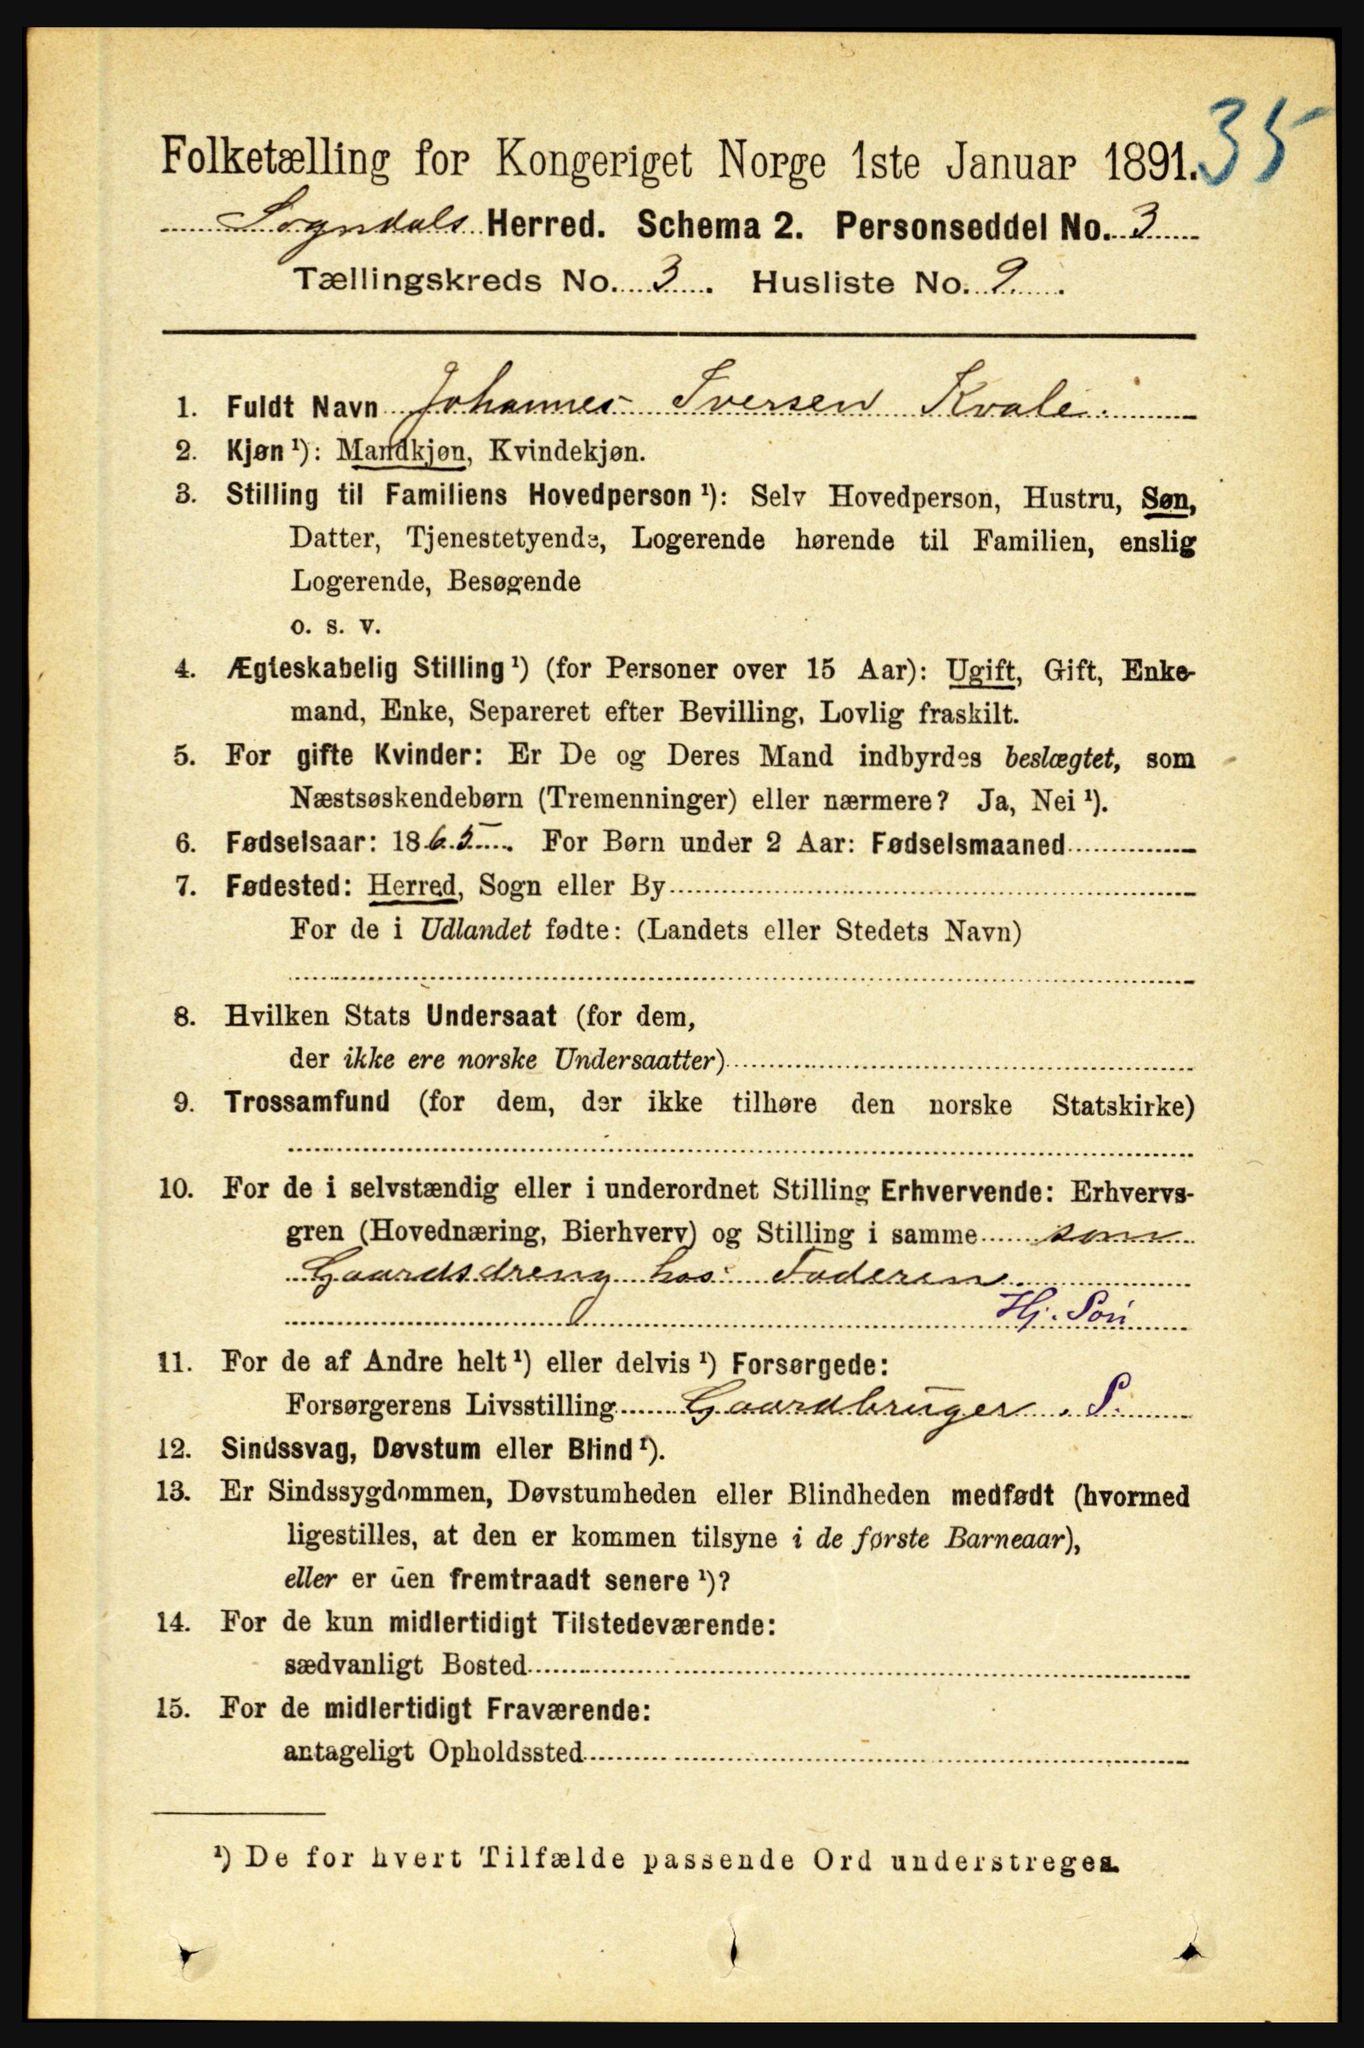 35
Folketælling for Kongeriget Norge 1ste Januar 1891.
Sogndals Herred. Schema 2. Personseddel No. 3
Tællingskreds No. 3. Husliste No. 9.
1. Fuldt Navn Johannes Iversen Kvale.
2. Kjøn ¹): Mandkjøn, Kvindekjøn.
3. Stilling til Familiens Hovedperson ¹): Selv Hovedperson, Hustru, Søn,
Datter, Tjenestetyende, Logerende hørende til Familien, enslig
Logerende, Besøgende
o. s. v.
4. Ægteskabelig Stilling ¹) (for Personer over 15 Aar): Ugift, Gift, Enke-
mand, Enke, Separeret efter Bevilling, Lovlig fraskilt.
5. For gifte Kvinder: Er De og Deres Mand indbyrdes beslægtet, som
Næstsøskendebørn (Tremenninger) eller nærmere? Ja, Nei ¹).
6. Fødselsaar: 1865. For Børn under 2 Aar: Fødselsmaaned
7. Fødested: Herred, Sogn eller By
For de i Udlandet fødte: (Landets eller Stedets Navn)
8. Hvilken Stats Undersaat (for dem,
der ikke ere norske Undersaatter)
9. Trossamfund (for dem, der ikke tilhøre den norske Statskirke)
10. For de i selvstændig eller i underordnet Stilling Erhvervende: Erhvervs-
gren (Hovednæring, Bierhverv) og Stilling i samme som
Gaardsdreng hos Faderen
Hj. Søn
11. For de af Andre helt ¹) eller delvis ¹) Forsørgede:
Forsørgerens Livsstilling Gaardbruger. S.
12. Sindssvag, Døvstum eller Blind ¹).
13. Er Sindssygdommen, Døvstumheden eller Blindheden medfødt (hvormed
ligestilles, at den er kommen tilsyne i de første Barneaar),
eller er den fremtraadt senere ¹)?
14. For de kun midlertidigt Tilstedeværende:
sædvanligt Bosted
15. For de midlertidigt Fraværende:
antageligt Opholdssted
¹) De for hvert Tilfælde passende Ord understreges.